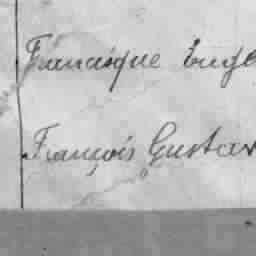 Francisque Euge
François Gustav